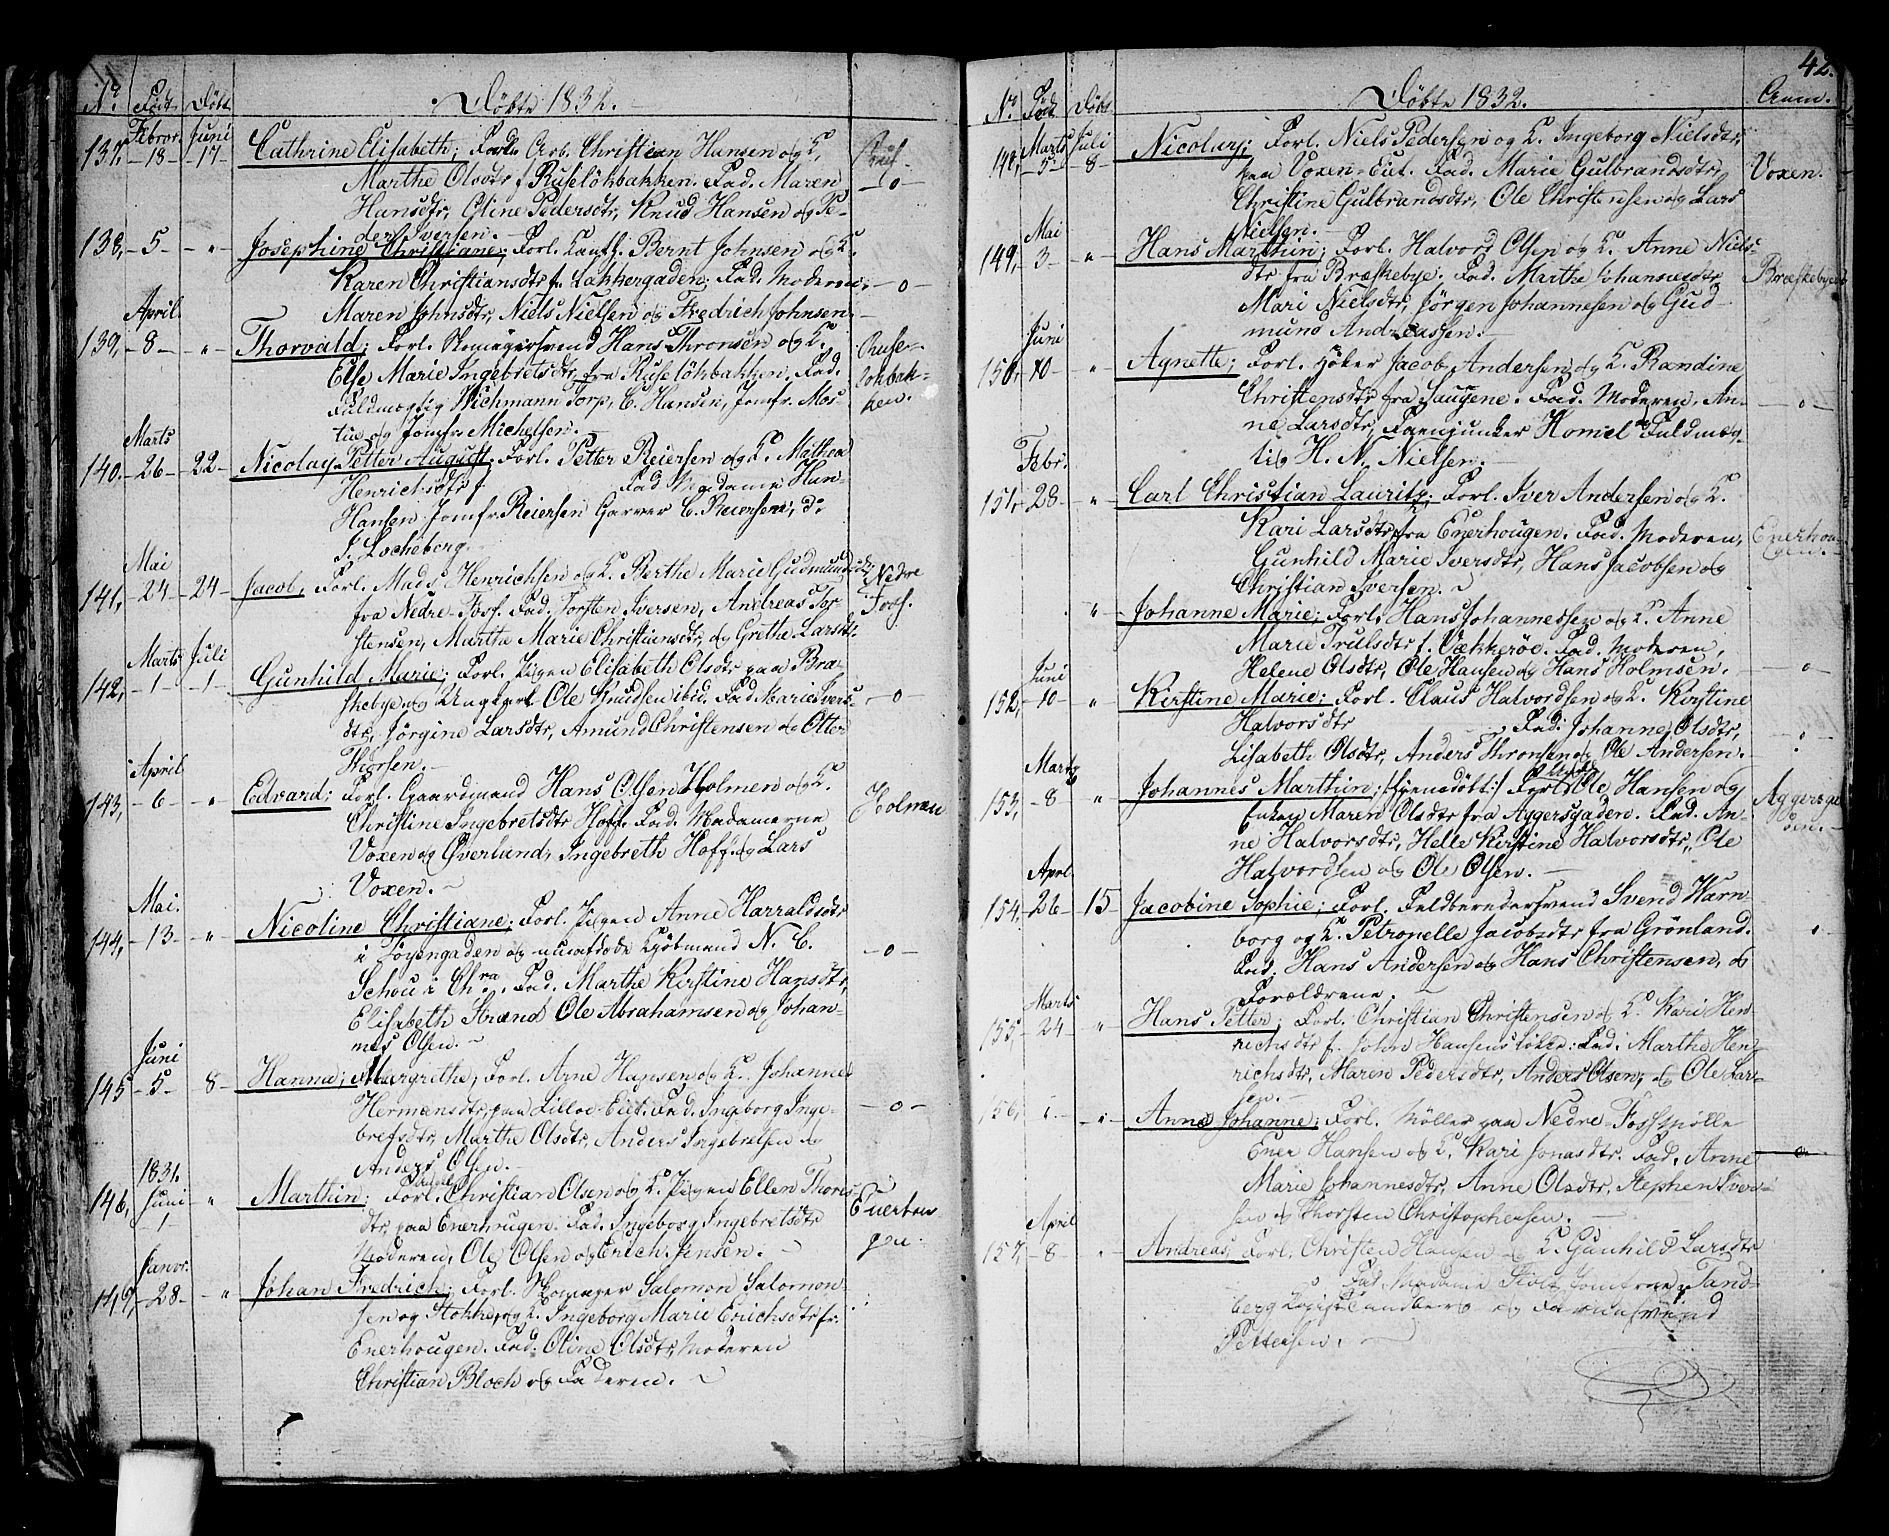 Døbte 1832.
No Født Døbt
137. Februar 18 Juni 17 Cathrine Elisabeth; Forl. Arb. Christian Hansen og K.
Marthe Olsdtr f Ruseløkbakken. Fad. Maren
Hansdtr, Oline Pedersdtr, Knud Hansen og Pe-
der Iversen.
138, 5 " Josephine Christiane; Forl. Bernt Johnsen og K.
Karen Christiansdtr fr. Lakkergaden; Fad. Moderen, -o-
Maren Johnsdtr, Niels Nielsen og Fredrich Johnsen.
139, April 8 " Thorvald; Forl. Skomagersvend Hans Thronsen og K.
Else Marie Ingebretsdtr fra Ruseløkbakken. Fad. Ruse-
Fuldmægtig Wichmann Torp, C. Hansen, Jomfr. løkbak-
og Jomfr. Michelsen. ken.
140. Marts 26 22 Nicolay Petter August. Forl. Petter Reiersen og K. Mathea
Henrichsdtr f Fad Madame
Hansen Jomfr. Reiersen Garver C. Reiersen, do
J. Locheborg.
141, Mai 24 24 Jacob, Forl. Mads Henrichsen og K. Berthe Marie Gudmundsdtr Nedre
fra Nedre Foss. Fad. Torsten Iversen, Andreas Tor- Foss.
stensen, Marthe Marie Christiansdtr, og Grethe Larsdtr.
142, Marts 1 Juli 1 Gunhild Marie; Forl. Pigen Elisabeth Olsdtr paa Bræ-
skebye og Ungkarl Ole Knudsen ibid. Fad. Marie Ivers- -o-
dtr, Jørgine Larsdtr, Amund Christensen og Otter
Thorsen.
143, April 6 " Edvard; Forl. Gaardmand Hans Olsen Holmen og K.
Christine Ingebretsdtr Hoff. Fad. Madamerne Holmen
Voxen og Øverland, Ingebreth Hoff og Lars
Voxen.
144, Mai. 13 " Nicoline Christiane; Forl. Pigen Anne Harraldsdtr
i Tøyengaden og Kjøbmand N. C. -o-
Schou i Chra. Fad. Marthe Kirstine Hansdtr,
Elisabeth Strand Ole Abrahamsen og Johan-
nes Olsen.
145 Juni 5 8 Hanna Margrethe; Forl. Arne Hansen og K. Johanne
Hermansdtr, paa Lilloe-Eiet. Fad. Ingeborg Inge- -o-
bretsdtr, Marthe Olsdtr, Anders Ingebretsen og
Anders Olsen.
146, 1831. Juni 1 " Marthin; Forl. Christian Olsen og Pigen Ellen Thores-
dtr, paa Enerhougen. Fad. Ingeborg Ingebretsdtr Enerhou-
Moderen, Ole Olsen og Erich Jensen. gen.
147, Janvr. 28 " Johan Fredrich; Forl. Skomager Salomon Salomon-
sen og K. Ingeborg Marie Erichsdtr fr.
Enerhougen. Fad. Oline Olsdtr, Moderen
Christian Bloch og Faderen.
42.
Døbte 1832.
No Født Døbt Anm.
148, Marts 5 Juli 8 Nicolay; Forl. Niels Pedersen og K. Ingeborg Nielsdtr,
paa Voxen-Eiet. Fad. Marie Gulbrandsdtr, Voxen.
Christine Gulbrandsdtr, Ole Christensen og Lars
Nielsen.
149, Mai 3 " Hans Marthin; Forl. Halvord Olsen og K. Anne Niels-
dtr fra Bræskebye. Fad. Marthe Johannesdtr, Bræskebye
Mari Nielsdtr, Jørgen Johannesen og Gud-
mund Andreassen.
150, Juni 10 " Agnette; Forl. Høker Jacob Andersen og K. Randine
Christensdtr fra Saugene. Fad. Moderen, An- -o-
ne Larsdtr, Fanejunker Homel og Fuldmæg-
tig H. N. Nielsen.
151, Febr. 28 " Carl Christian Lauritz; Forl. Iver Andersen og K.
Kari Larsdtr fra Enerhougen. Fad. Moderen, Enerhou-
Gunhild Marie Iversdtr, Hans Jacobsen og gen.
Christian Iversen.
" Johanne Marie; Forl. Hans Johannessen og K. Anne
Marie Trulsdtr f. Vækkerøe. Fad. Moderen,
Helene Olsdtr, Ole Hansen og Hans Holmsen. -o-
152, Juni 10 " Kirstine Marie; Forl. Claus Halvordsen og K. Kirstine
Halvorsdtr Fad. Johanne Olsdtr,
Lisabeth Olsdtr, Anders Thronsen og Ole Andersen. -o-
153, Marts 8 " Johannes Marthin; (hjemdøbt) Forl. Ole Hansen og
Enken Maren Olsdtr fra Aggersgaden. Fad. An- Aggersga-
ne Halvorsdtr, Helle Kirstine Halvorsdtr, Ole den.
Halvordsen og Ole Olsen.
154, Aprl 26 15 Jacobine Sophie; Forl. Feldberedersvend Svend Warn-
borg og K. Petronelle Jacobsdtr fra Grønland.
Fad. Hans Andersen og Hans Christensen, og
Forældrene.
155, Marts 24 " Hans Petter; Forl. Christian Christensen og K. Kari Hen-
richsdtr f. John Hansens Løkke: Fad. Marthe Hen-
richsdtr, Maren Pedersdtr, Anders Olsen, og Ole Lar-
sen.
156, 1. " Anne Johanne; Forl. Møller paa Nedre-Fossmølle
Ener Hansen og K. Kari Jonasdtr. Fad. Anne -o-
Marie Johannesdtr, Anne Olsdtr, Stephen Iver-
sen og Thorsten Christophersen.
157, April 8 " Andreas, Forl. Christen Hansen og K. Gunhild Larsdtr
Fad. Madame Stolz Jomfrue Tand-
berg Tandberg og
Pettersen.